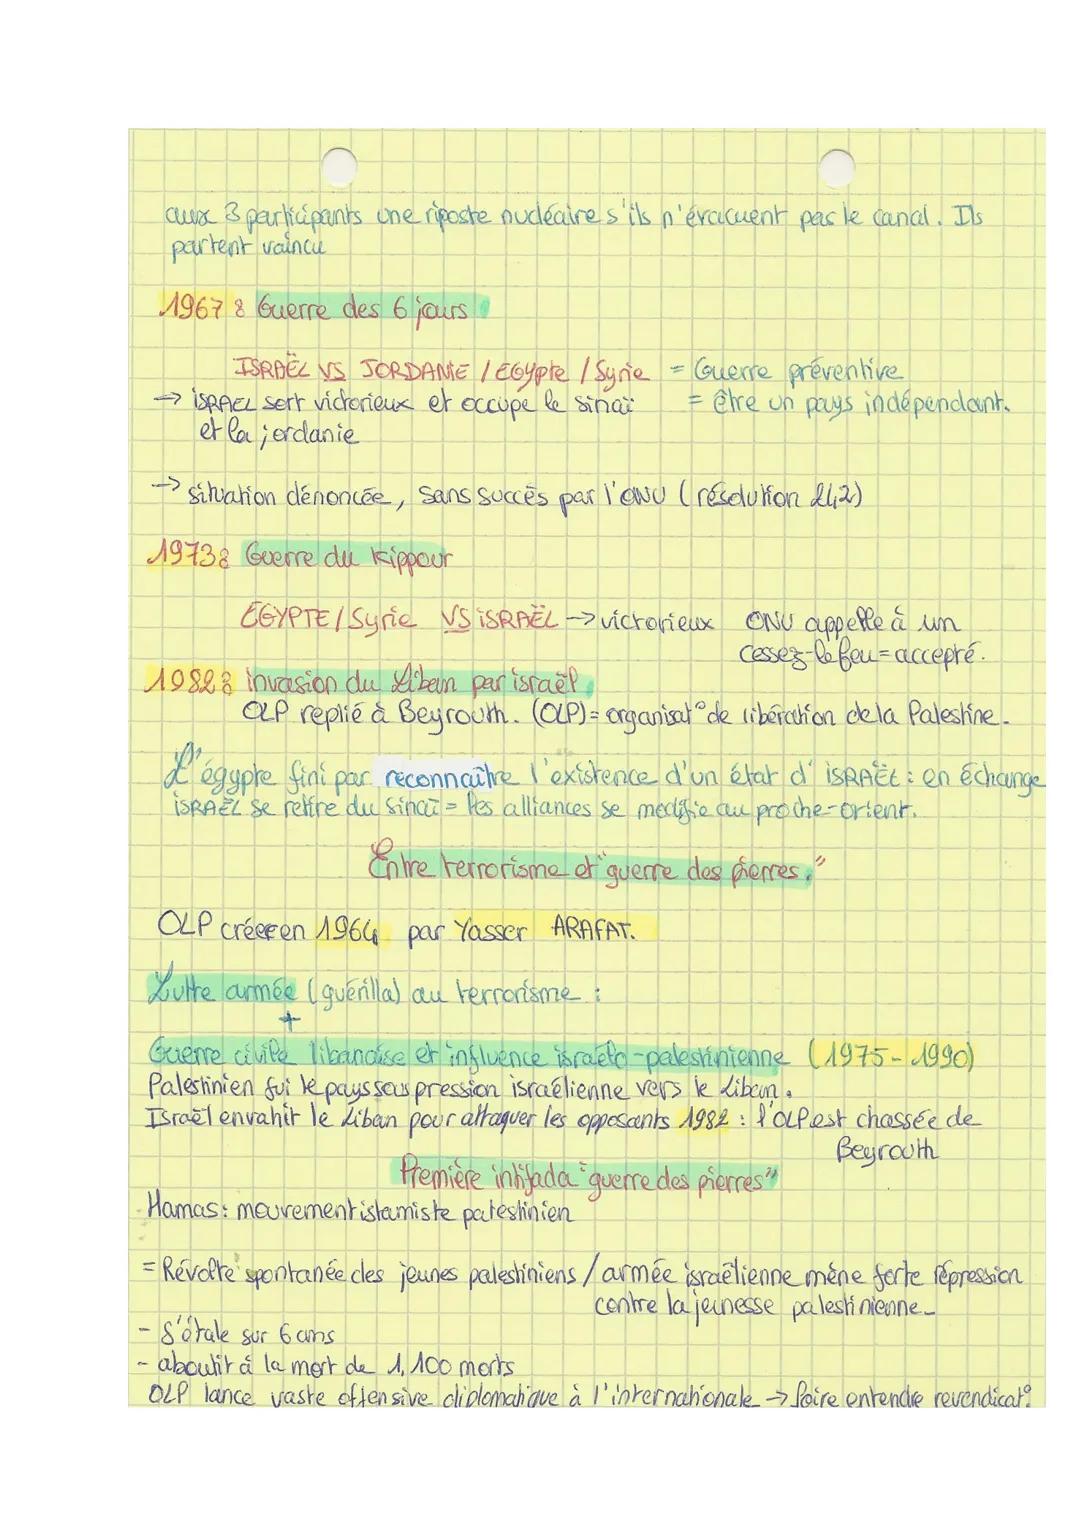 aux 3 participants une riposte nucléaire s'ils n'évacuent pas le canal. Ils
partent vaincu
1967 : Guerre des 6 jours
ISRAËL VS JORDANIE / EGYPte / Syrie = Guerre préventive
→ iSRAEL sort victorieux et occupe le sinaï = être un pays indépendant.
et la jordanie
→ situation dénoncée, sans succès par l'ONU (résolution 242)
1973 : Guerre du Kippour
EGYPTE / Syrie VS iSRAËL → victorieux ONU appelle à un
cessez-le feu = accepté.
1982 : invasion du Liban par israël
OLP replié à Beyrouth. (OLP) = organisat° de libération de la Palestine.
L'égypte fini par reconnaître l'existence d'un état d' iSRAËL : en échange
iSRAËL se retire du sinaï = les alliances se modifie au proche-orient.
Entre terrorisme et "guerre des pierres."
OLP créée en 1964 par Yasser ARAFAT.
Lutte armée (guérilla) au terrorisme :
+
Guerre civile libanaise et influence israélo-palestinienne (1975-1990)
Palestinien fui le pays sous pression israélienne vers le Liban.
Israël envahit le Liban pour attaquer les opposants 1982 : l'OLP est chassée de
Beyrouth
Première intifada "guerre des pierres"
Hamas : mouvement islamiste palestinien
= Révolte spontanée des jeunes palestiniens / armée israélienne mène forte répression
contre la jeunesse palestinienne
- s'étale sur 6 ans
- aboutit à la mort de 1,100 morts
OLP lance vaste offensive diplomatique à l'internationale → faire entendre revendicat°